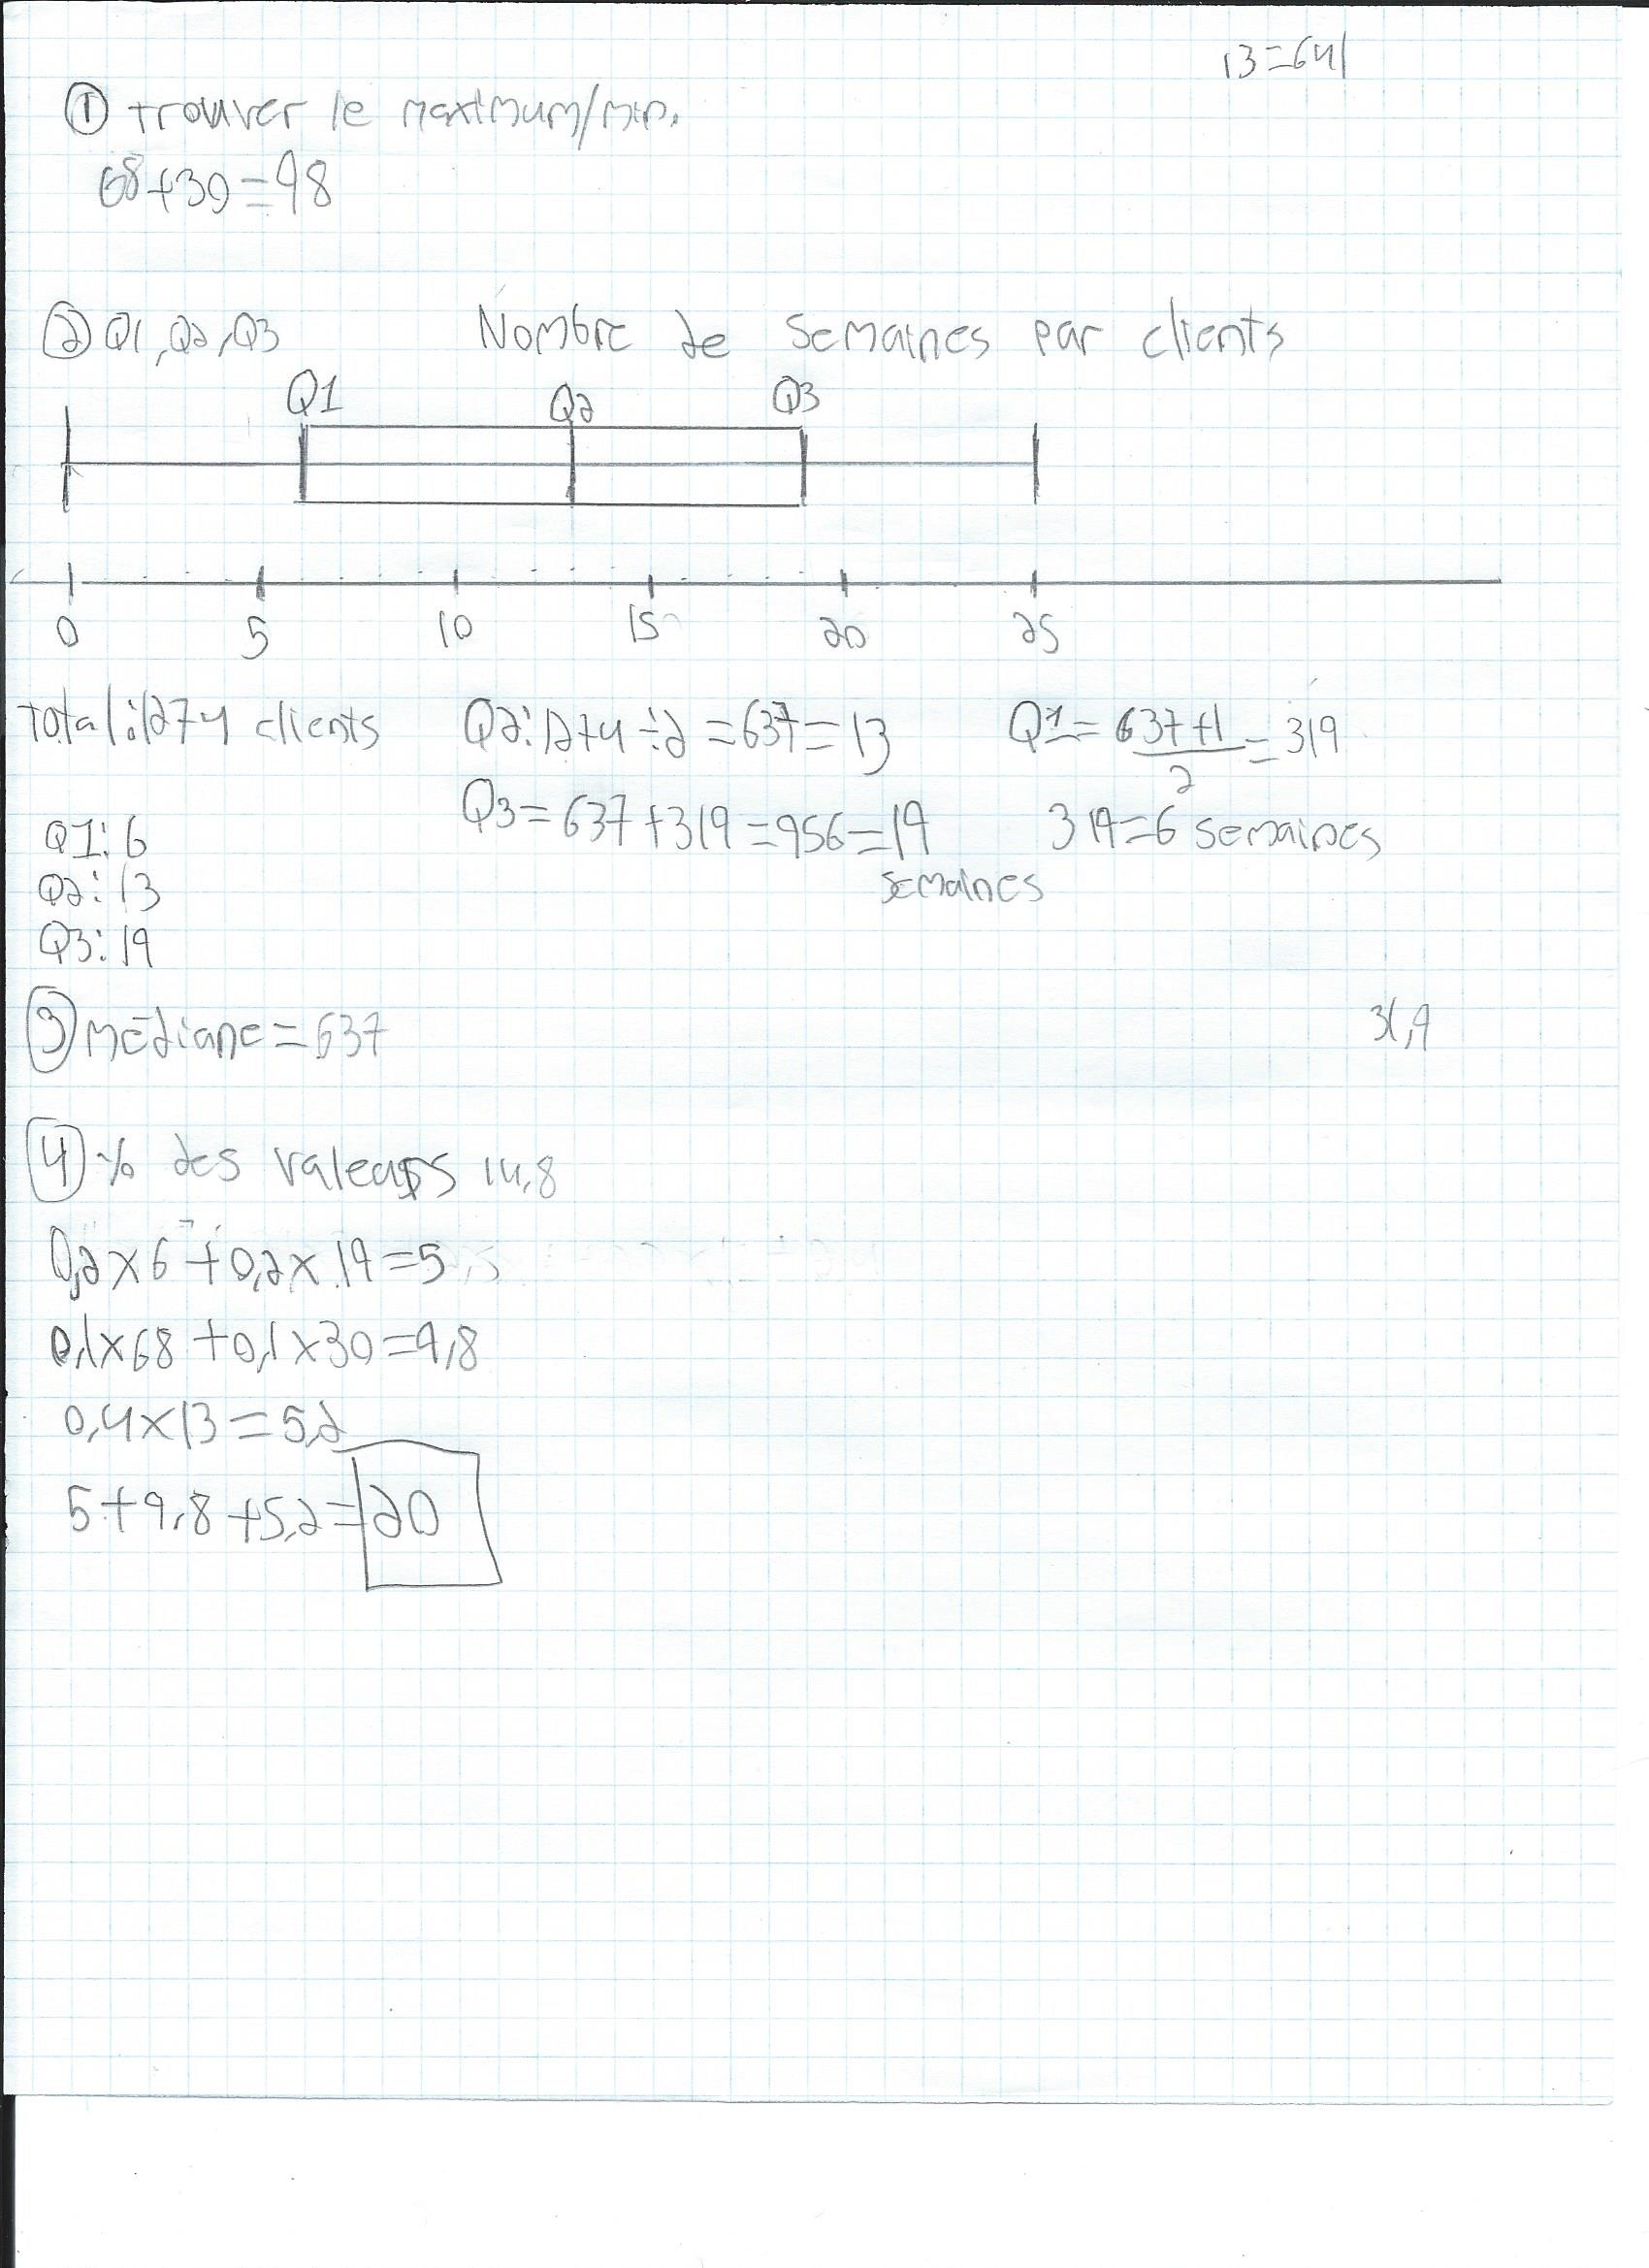 13=641
① trouver le maximum/min.
68+30=98
② Q1, Q2, Q3 Nombre de semaines par clients
Q1 Q2 Q3
0 5 10 15 20 25
Total:1274 clients Q2: 1274÷2=637=13 Q1=637+1/2=319
Q3=637+319=956=19 semaines 319=6 semaines
Q1: 6
Q2: 13
Q3: 19
③ médiane=637
④ % des valeurs 14,8
0,2×6+0,2×19=5
0,1×68+0,1×30=9,8
0,4×13=5,2
5+9,8+5,2=20